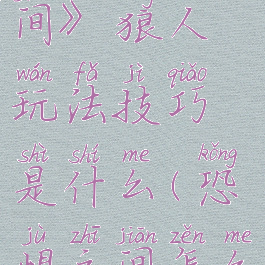 间》 狼人
wán fǎ jì qiǎo
玩法技巧
shì shí me kǒng
是什么(恐
jù zhī jiān zěn me
惧之间怎么